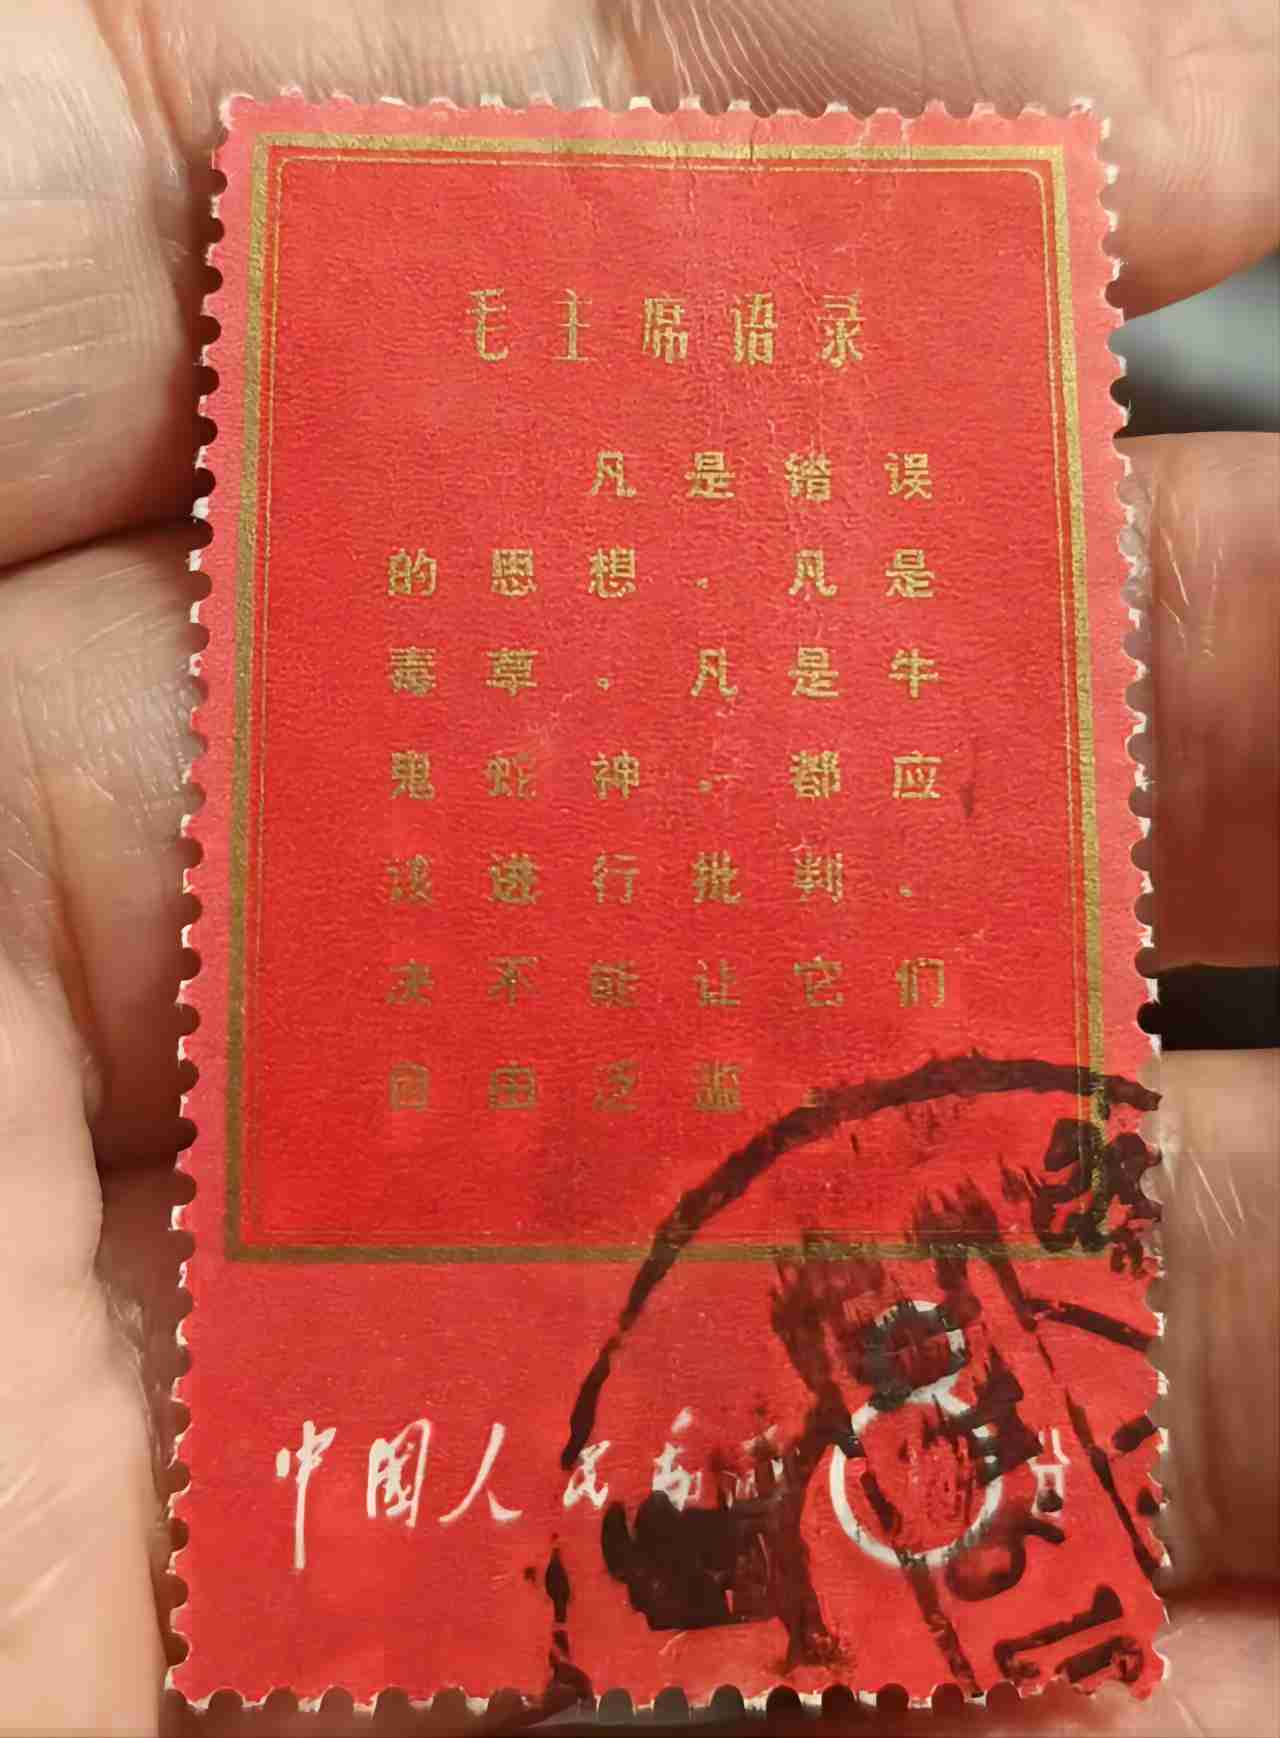 毛主席语录
凡是错误
的思想，凡是
毒草，凡是牛
鬼蛇神，都应
该进行批判，
决不能让它们
自由泛滥。
中国人民邮政 8分